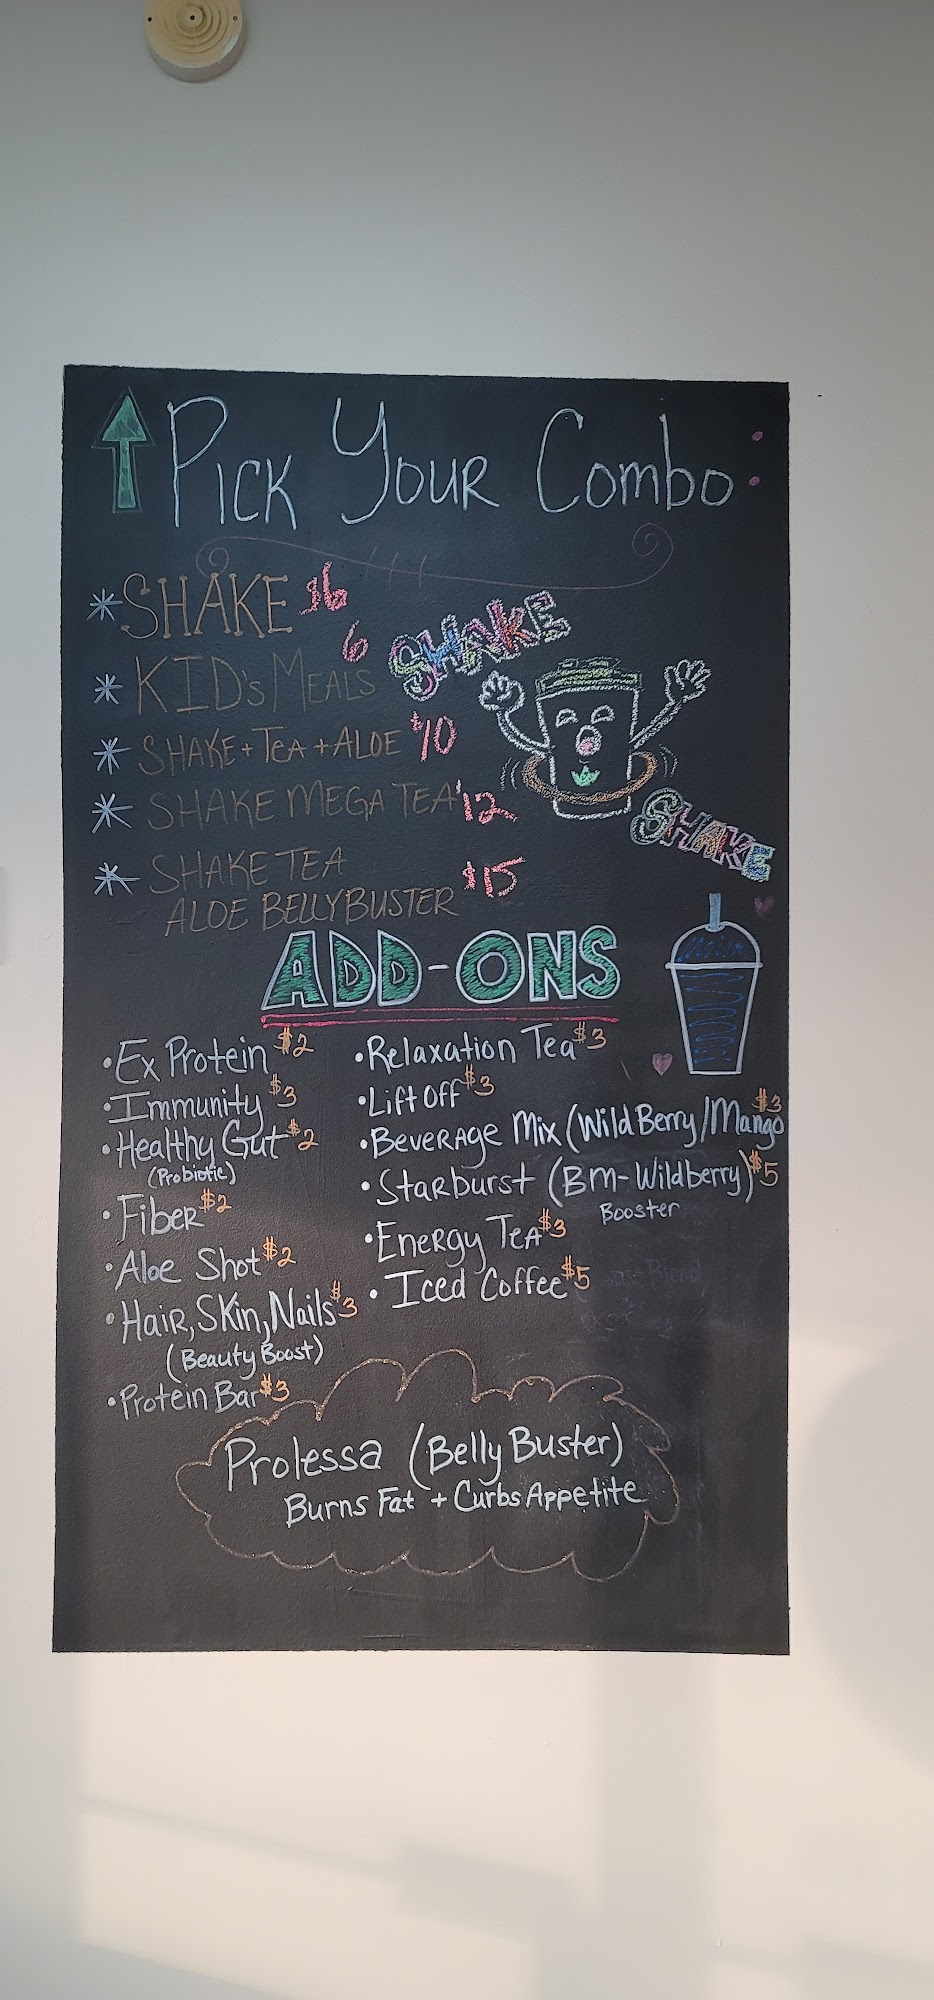 Pick Your Combo:
*SHAKE $6
*KID's MEALS 6
SHAKE
*SHAKE + TEA + ALOE $10
*SHAKE MEGA TEA $12
SHAKE
*SHAKE TEA
ALOE BELLYBUSTER $15
ADD-ONS
•Ex Protein $2
•Immunity $3
•Healthy Gut $2
(Probiotic)
•Fiber $2
•Aloe Shot $2
•Hair, Skin, Nails $3
(Beauty Boost)
•Protein Bar $3
•Relaxation Tea $3
•Lift Off $3
•Beverage Mix (Wild Berry/Mango $3
•Starburst (BM-Wildberry) $5
Booster
•Energy Tea $3
•Iced Coffee $5
Prolessa (Belly Buster)
Burns Fat + Curbs Appetite